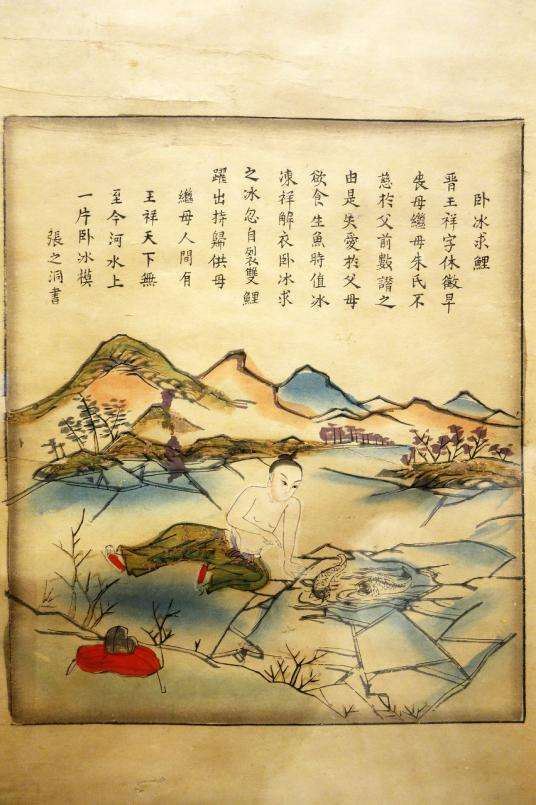 卧冰求鯉
晉王祥字休徵早
喪母繼母朱氏不
慈於父前數譖之
由是失愛於父母
欲食生魚時值冰
凍祥解衣卧冰求
之冰忽自裂雙鯉
躍出持歸供母
繼母人間有
王祥天下無
至今河水上
一片卧冰模
張之洞書